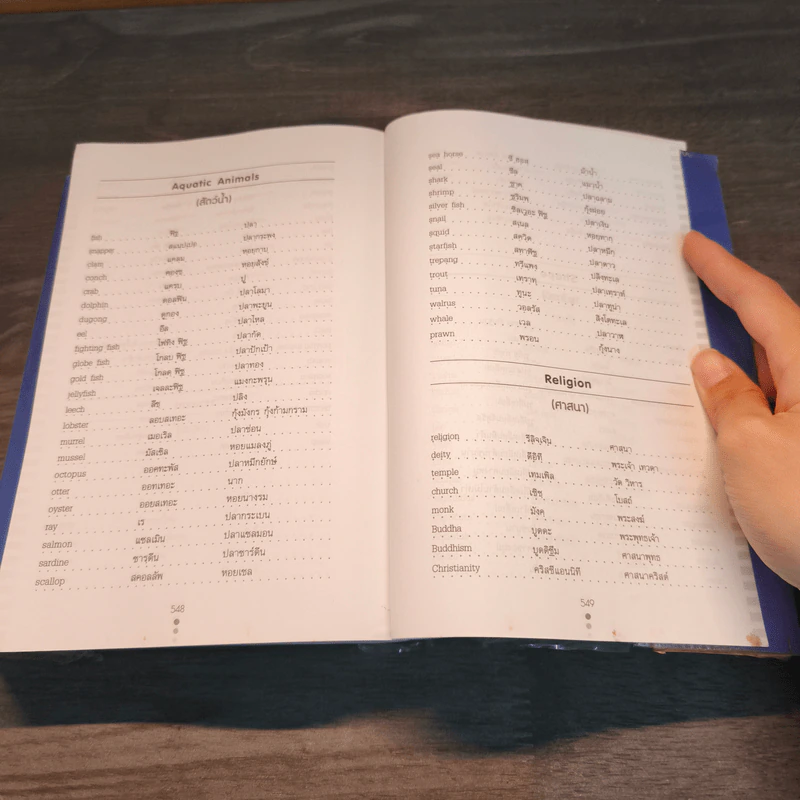 Aquatic Animals
(สัตว์น้ำ)
fish ฟิช ปลา
snapper สแนปเปอะ ปลากะพง
clam แคลม หอยกาบ
conch คองชฺ หอยสังข์
crab แครบ ปู
dolphin ดอลฟิน ปลาโลมา
dugong ดูกอง ปลาพะยูน
eel อีล ปลาไหล
fighting fish ไฟทิง ฟิช ปลากัด
globe fish โกลบ ฟิช ปลาปักเป้า
gold fish โกลดฺ ฟิช ปลาทอง
jellyfish เจลละฟิช แมงกะพรุน
leech ลีช ปลิง
lobster ลอบสเทอะ กุ้งมังกร กุ้งก้ามกราม
murrel เมอเร็ล ปลาช่อน
mussel มัสเซิล หอยแมลงภู่
octopus ออคทะพัส ปลาหมึกยักษ์
otter ออทเทอะ นาก
oyster ออยสเทอะ หอยนางรม
ray เร ปลากระเบน
salmon แซลเมิน ปลาแซลมอน
sardine ซารฺดีน ปลาซาร์ดีน
scallop สคอลลัพ หอยเชล
548
sea horse ซี ฮอส ม้าน้ำ
seal ซีล แมวน้ำ
shark ชาค ปลาฉลาม
shrimp ชริมพฺ กุ้งฝอย
silver fish ซิลเวอะ ฟิช ปลาเงิน
snail สเนล หอยทาก
squid สควิด ปลาหมึก
starfish สทาฟิช ปลาดาว
trepang ทรีแพง ปลิงทะเล
trout เทราทฺ ปลาเทราท์
tuna ทูนะ ปลาทูน่า
walrus วอลรัส สิงโตทะเล
whale เวล ปลาวาฬ
prawn พรอน กุ้งนาง
Religion
(ศาสนา)
religion รีลิจเจิน ศาสนา
deity ดีอิที พระเจ้า เทวดา
temple เทมเพิล วัด วิหาร
church เชิช โบสถ์
monk มังคฺ พระสงฆ์
Buddha บุดดะ พระพุทธเจ้า
Buddhism บุดดิซึม ศาสนาพุทธ
Christianity คริสชีแอนนิที ศาสนาคริสต์
549